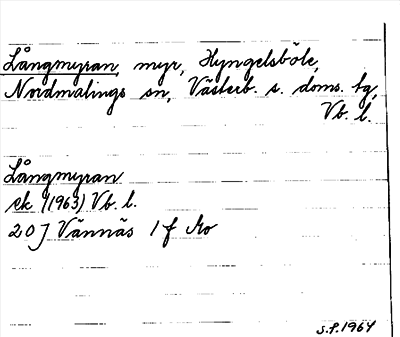 Långmyran, myr, Hyngelsböle,
Nordmalings sn, Västerb. s. doms. tg,
Vb. l.
Långmyran
ek (1963) Vb. l.
20 J Vännäs 1 f Mo
S.P. 1964